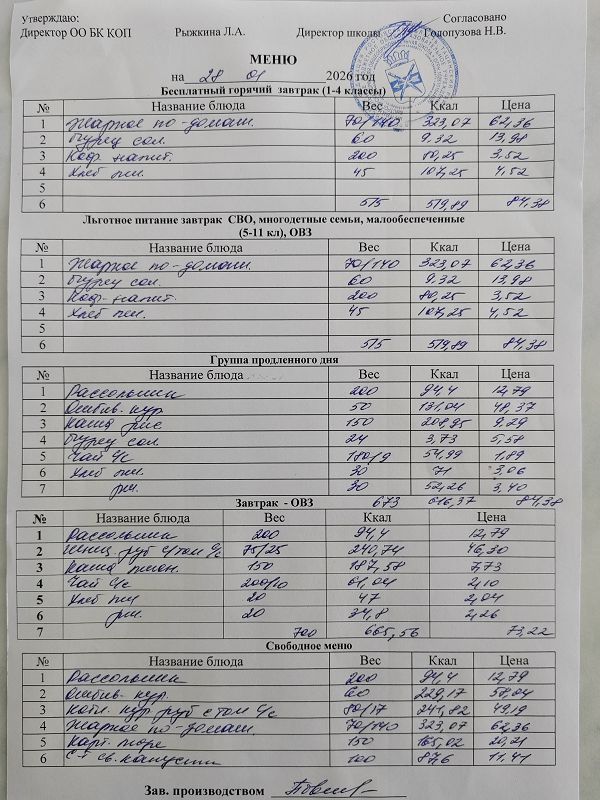 Утверждаю: Согласовано
Директор ОО БК КОП Рыжкина Л.А. Директор школы Голопузова Н.В.
МЕНЮ
на 28 01 2026 год
Бесплатный горячий завтрак (1-4 классы)
№ Название блюда Вес Ккал Цена
1 Жаркое по-домаш. 70/140 323,07 62,36
2 Огурец сол. 60 9,32 13,98
3 Коф. напит. 200 80,25 3,52
4 Хлеб пш. 45 107,25 4,52
5
6 515 519,89 84,38
Льготное питание завтрак СВО, многодетные семьи, малообеспеченные
(5-11 кл), ОВЗ
№ Название блюда Вес Ккал Цена
1 Жаркое по-домаш. 70/140 323,07 62,36
2 Огурец сол. 60 9,32 13,98
3 Коф. напит. 200 80,25 3,52
4 Хлеб пш. 45 107,25 4,52
5
6 515 519,89 84,38
Группа продленного дня
№ Название блюда Вес Ккал Цена
1 Рассольник 200 94,4 12,79
2 Отбив. кур 50 131,04 48,37
3 Каша рис 150 208,95 9,29
4 Огурец сол. 24 3,73 5,58
5 Чай с/с 180/9 54,99 1,89
6 Хлеб пш. 30 71 3,06
7 рж. 30 52,26 3,40
673 616,37 84,38
Завтрак - ОВЗ
№ Название блюда Вес Ккал Цена
1 Рассольник 200 94,4 12,79
2 Шниц. руб с том с/с 75/25 240,74 46,30
3 Каша пшен. 150 187,58 7,73
4 Чай с/с 200/10 61,04 2,10
5 Хлеб пш 20 47 2,04
6 рж. 20 34,8 2,26
7 700 665,56 73,22
Свободное меню
№ Название блюда Вес Ккал Цена
1 Рассольник 200 94,4 12,79
2 Отбив. кур. 60 229,17 58,04
3 Котл. кур руб с том с/с 80/17 241,82 49,19
4 Жаркое по-домаш. 70/140 323,07 62,36
5 Карт. пюре 150 165,02 20,21
6 С-т св. капусты 100 87,6 11,41
Зав. производством